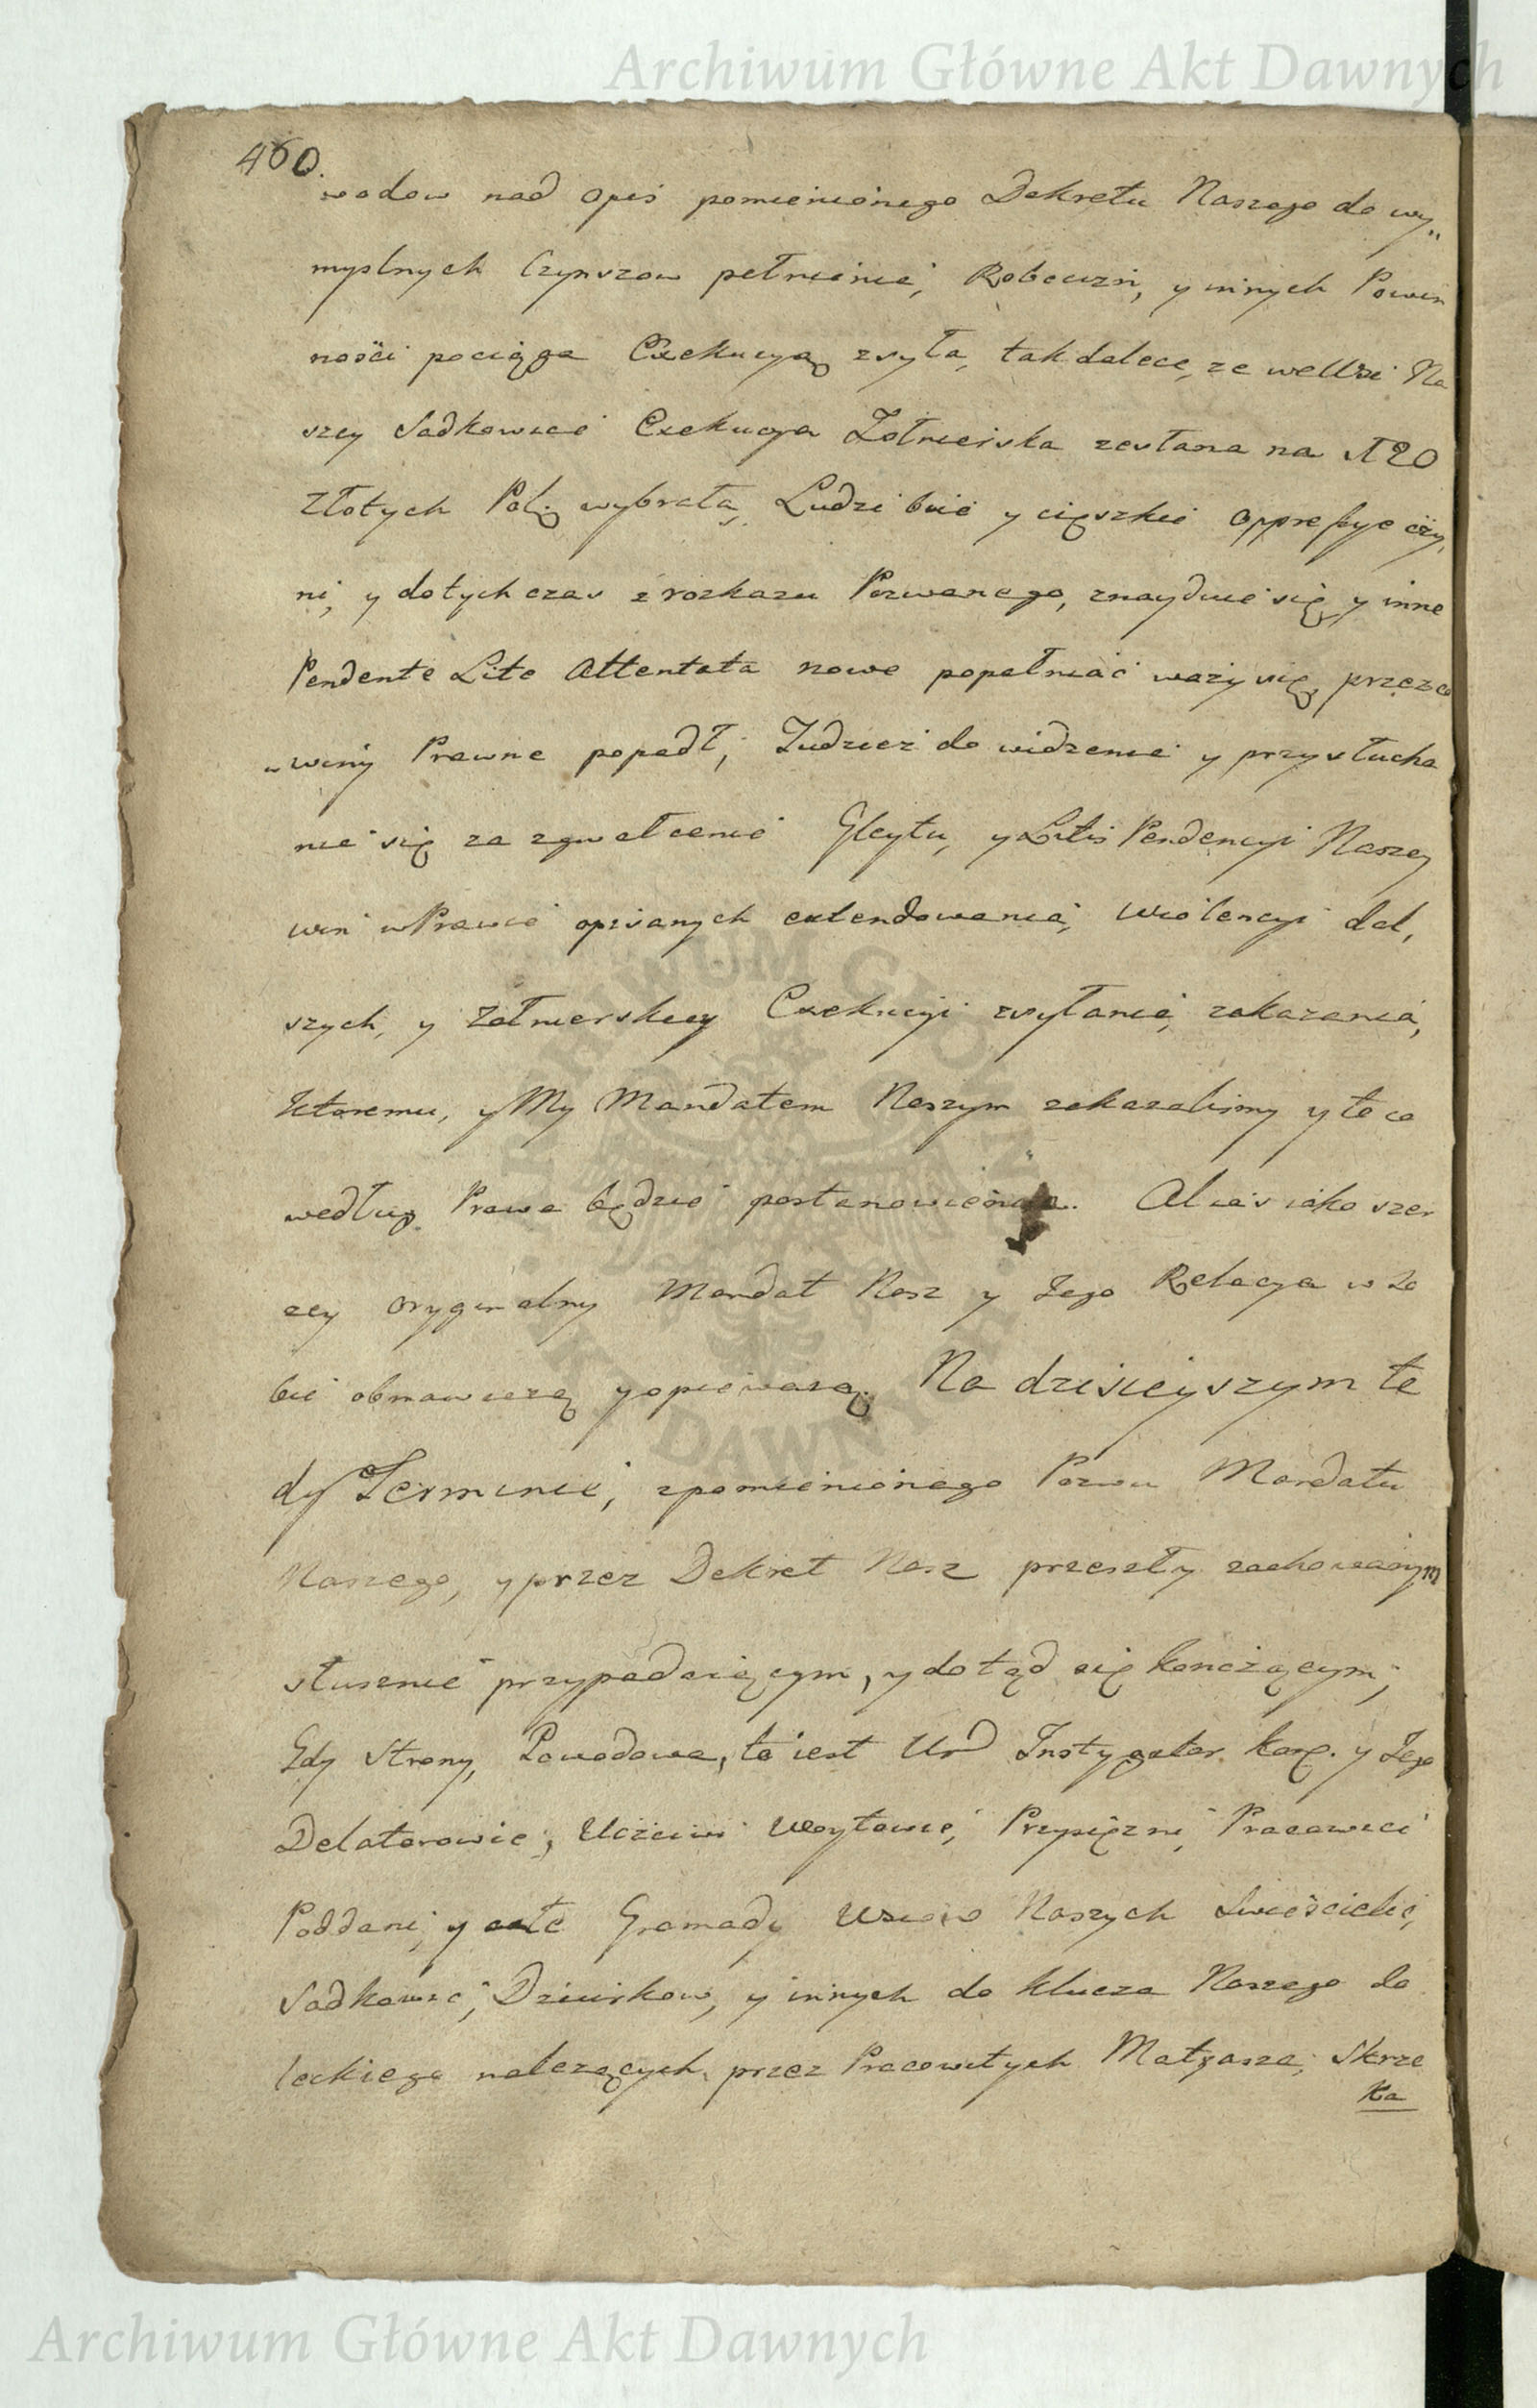 Archiwum Główne Akt Dawnych
460.
wodow nad opis pomienionego Dekretu Naszego do wy„
myslnych Czynszow pełnienia, Robocizn, y innych Powin
nosci pociąga Exekucyą zsyła, tak dalece, ze we Wsi Na
szey Sadkowice Exekucya Zołnierska zesłana na 120
Złotych Pol: wybrała, Ludzi biie y cięszkie oppressye czy,
ni, y dotychczas z rozkazu Pozwanego, znayduie się, y inne
Pendente Lite Attentata nowe popełniać wazy się, przez co
w winy Prawne popadł, Tudziez do widzenia y przysłucha
nia się za zgwałcenie Gleytu, y Litis Pendencyi Naszey
win w Prawie opisanych extendowania, Wiolencyi dal,
szych, y Zołnierskiey Exekucyi zsyłania, zakazania,
Ktoremu, y My Mandatem Naszym zakazalismy y te co
według Prawa będzie postanowienia. Alias iako szer
zey oryginalny Mandat Nasz y Jego Relacya w So
bie obmawiaią y opiewaią. Na dzisieyszym te
dy Terminie, z pomienionego Pozwu Mandatu
Naszego, y przez Dekret Nasz przeszły zachowanym
słusznie przypadaiącym, y dotąd się konczącym,
Gdy Strony, Powodowa, to iest Ur Instygator Kor. y Jego
Delatorowie, Uczciwi Woytowie, Przysięzni, Pracowici
Poddani, y całe Gromady Wsiow Naszych Swieścielic,
Sadkowic, Dziurkow, y innych do Klucza Naszego So
leckiego nalezących, przez Pracowitych Matyasza, Skrze
ka
ARCHIWUM GŁÓWNE AKT DAWNYCH
Archiwum Główne Akt Dawnych